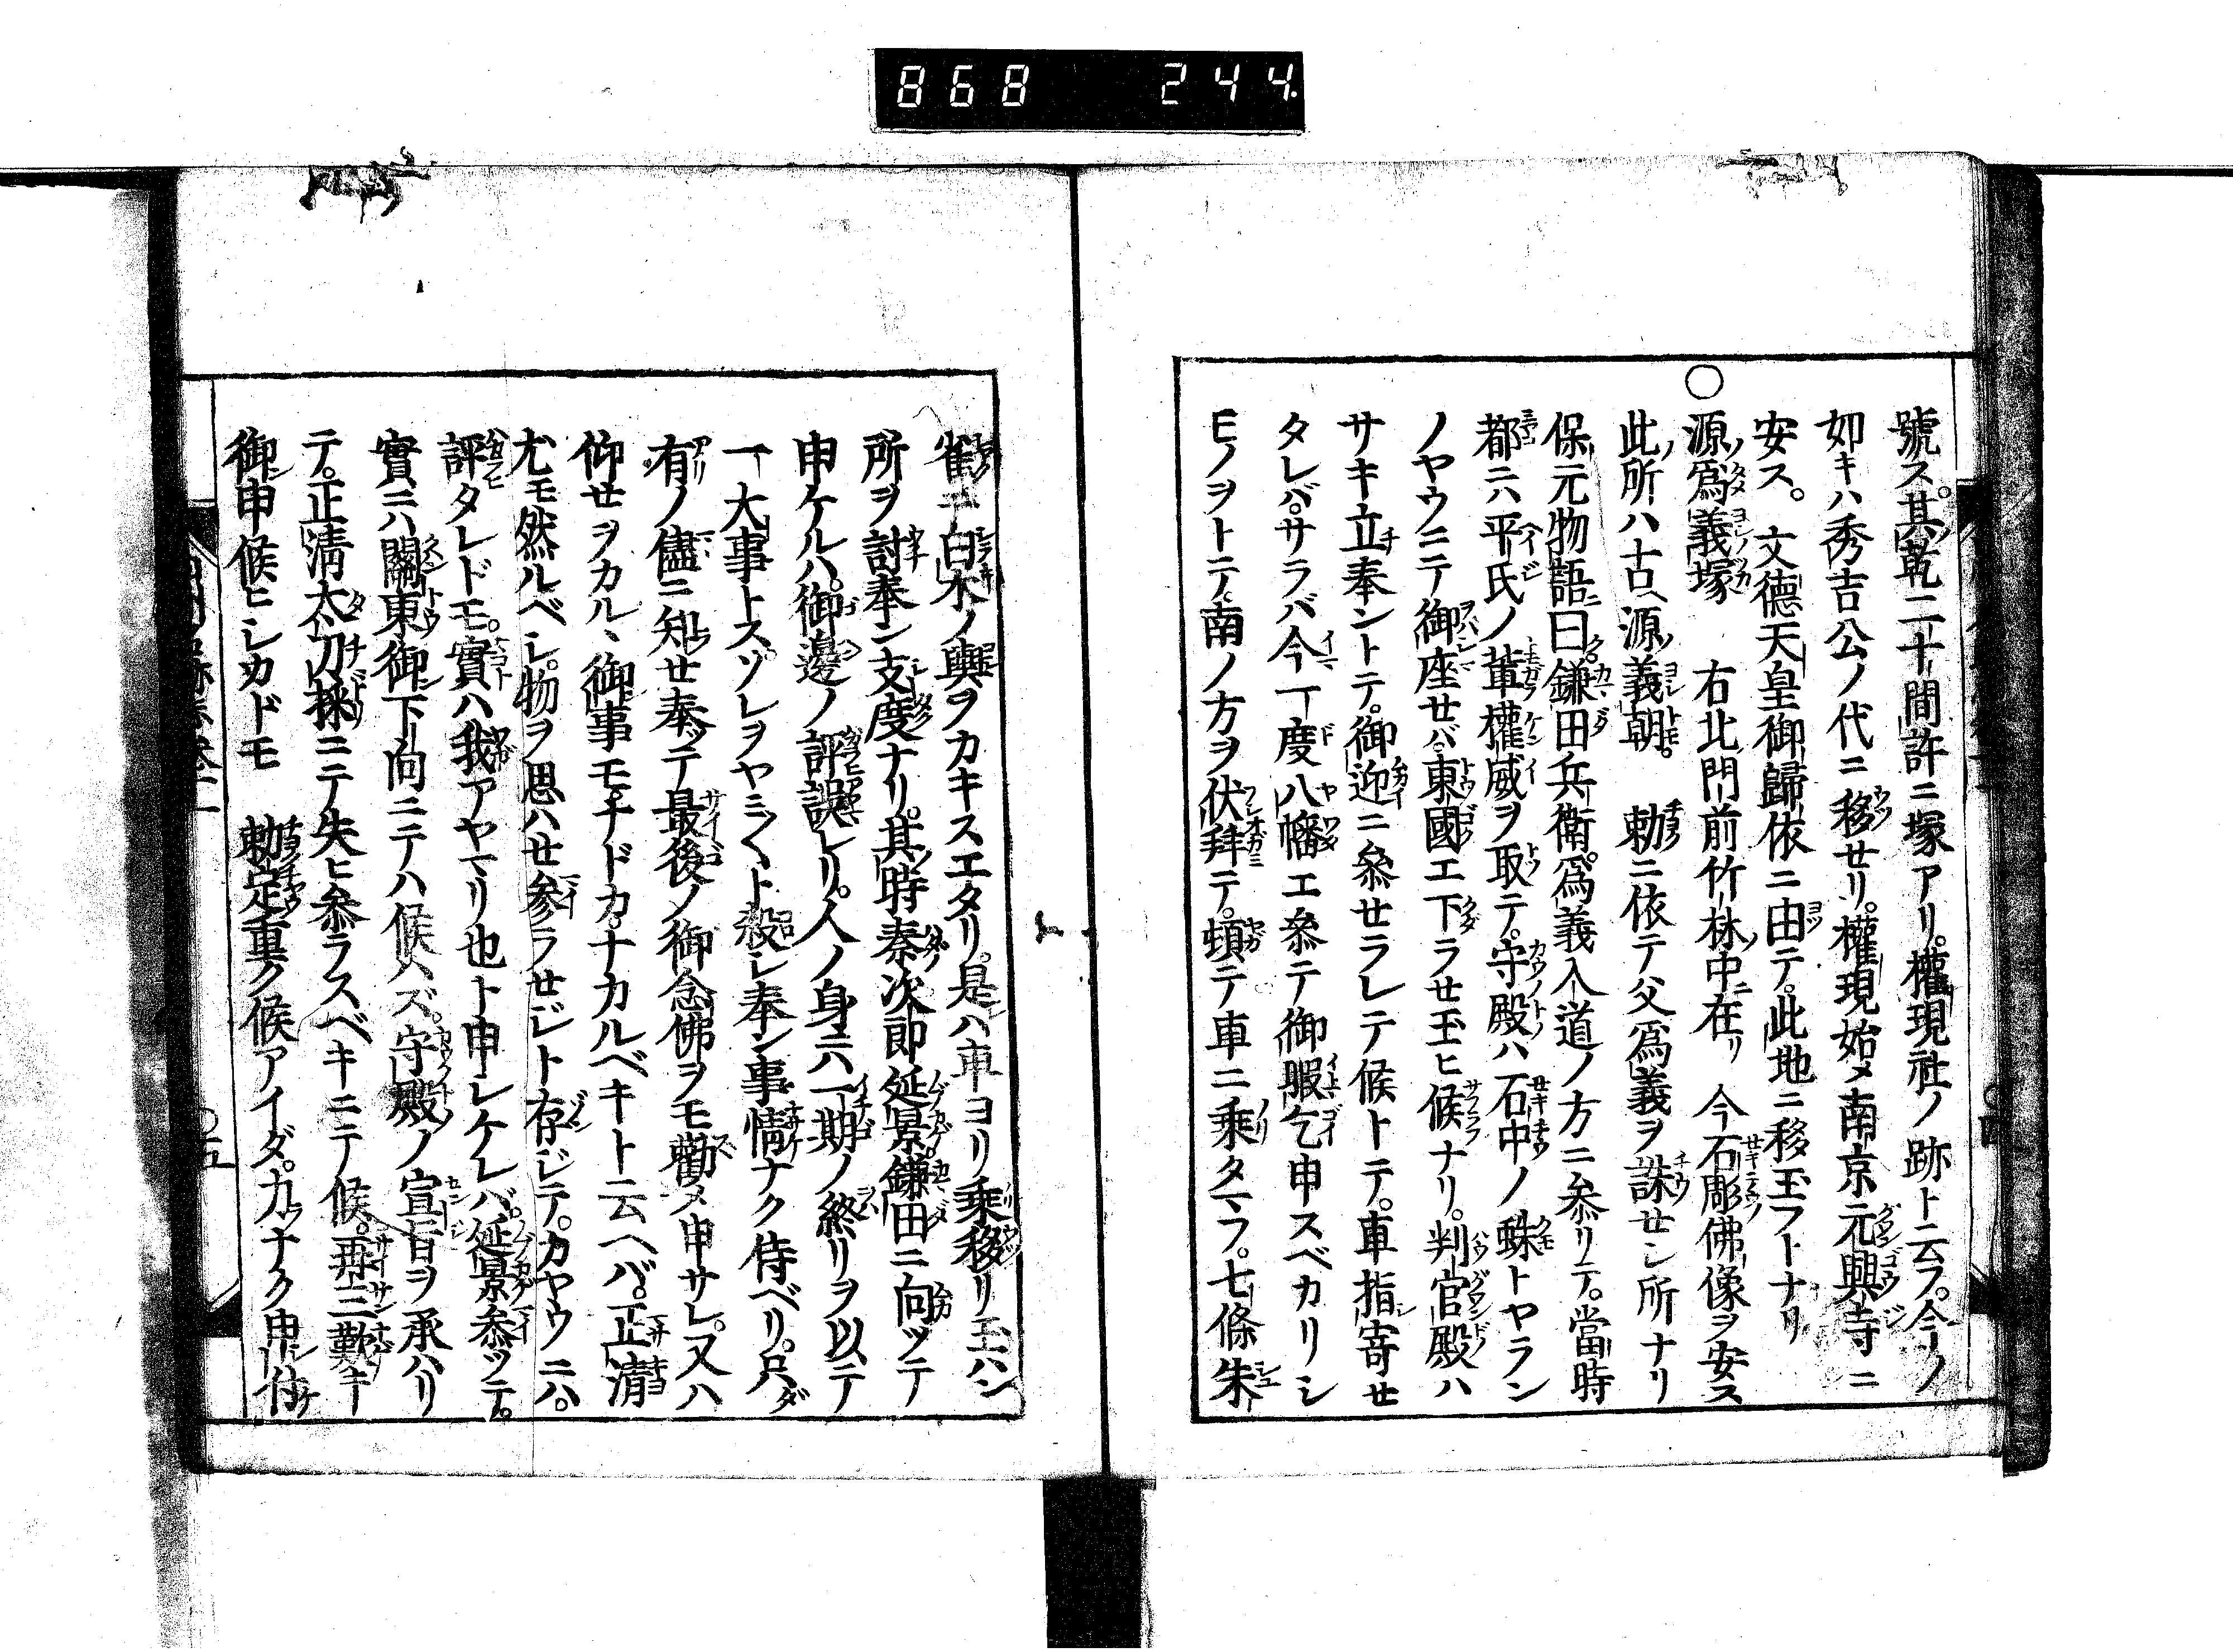 868 244
號ス。其乾二十間許ニ塚アリ。權現社ノ跡ト云フ。今ノ
如キハ秀吉公ノ代ニ移セリ。權現始メ南京元興寺ニ
安ス。文德天皇御歸依ニ由テ。此地ニ移玉フトナリ
○源爲義塚 右北門前竹林中在リ 今石彫佛像ヲ安ス
此所ハ古ヘ源ノ義朝。 勅ニ依テ父爲義ヲ誅セシ所ナリ
保元物語ニ曰ク。鎌田兵衞。爲義入道ノ方ニ叅リテ。當時
都ニハ平氏ノ輩權威ヲ取テ。守殿ハ石中ノ蛛トヤラン
ノヤウニテ御座セバ。東國エ下ラセ玉ヒ候ナリ。判官殿ハ
サキ立奉ントテ。御迎ニ叅セラレテ候トテ。車指寄セ
タレバ。サラバ今一度八幡エ叅テ御暇乞申スベカリシ
モノヲトテ。南ノ方ヲ伏拜テ。頓テ車ニ乘タマフ。七條朱
雀ニ白木ノ輿ヲカキスエタリ。是ハ車ヨリ乘移リ玉ハン
所ヲ討奉ン支度ナリ。其時秦次郎延景。鎌田ニ向ツテ
申ケルハ。御邊ノ評誤レリ。人ノ身ニハ一期ノ終リヲ以テ
一大事トス。ソレヲヤミ〱ト殺シ奉ン事情ナク侍ベリ。只ダ
有ノ儘ニ知セ奉ツテ最後ノ御念佛ヲモ勸メ申サレ。又ハ
仰セヲカルヽ御事モナドカ。ナカルベキト云ヘバ。正淸
尤モ然ルベシ。物ヲ思ハせ參ラせジト存ジテ。カヤウニハ。
評タレドモ。實ハ我アヤマリ也ト申シケレバ。延景叅ツテ。
實ニハ關東御下向ニテハ候ハズ。守殿ノ宣旨ヲ承ハリ
テ。正淸太刀採ニテ失ヒ叅ラスベキニテ候。再三歎キ
御申候ヒシカドモ 勅定重ク候アイダ。力ナク申付